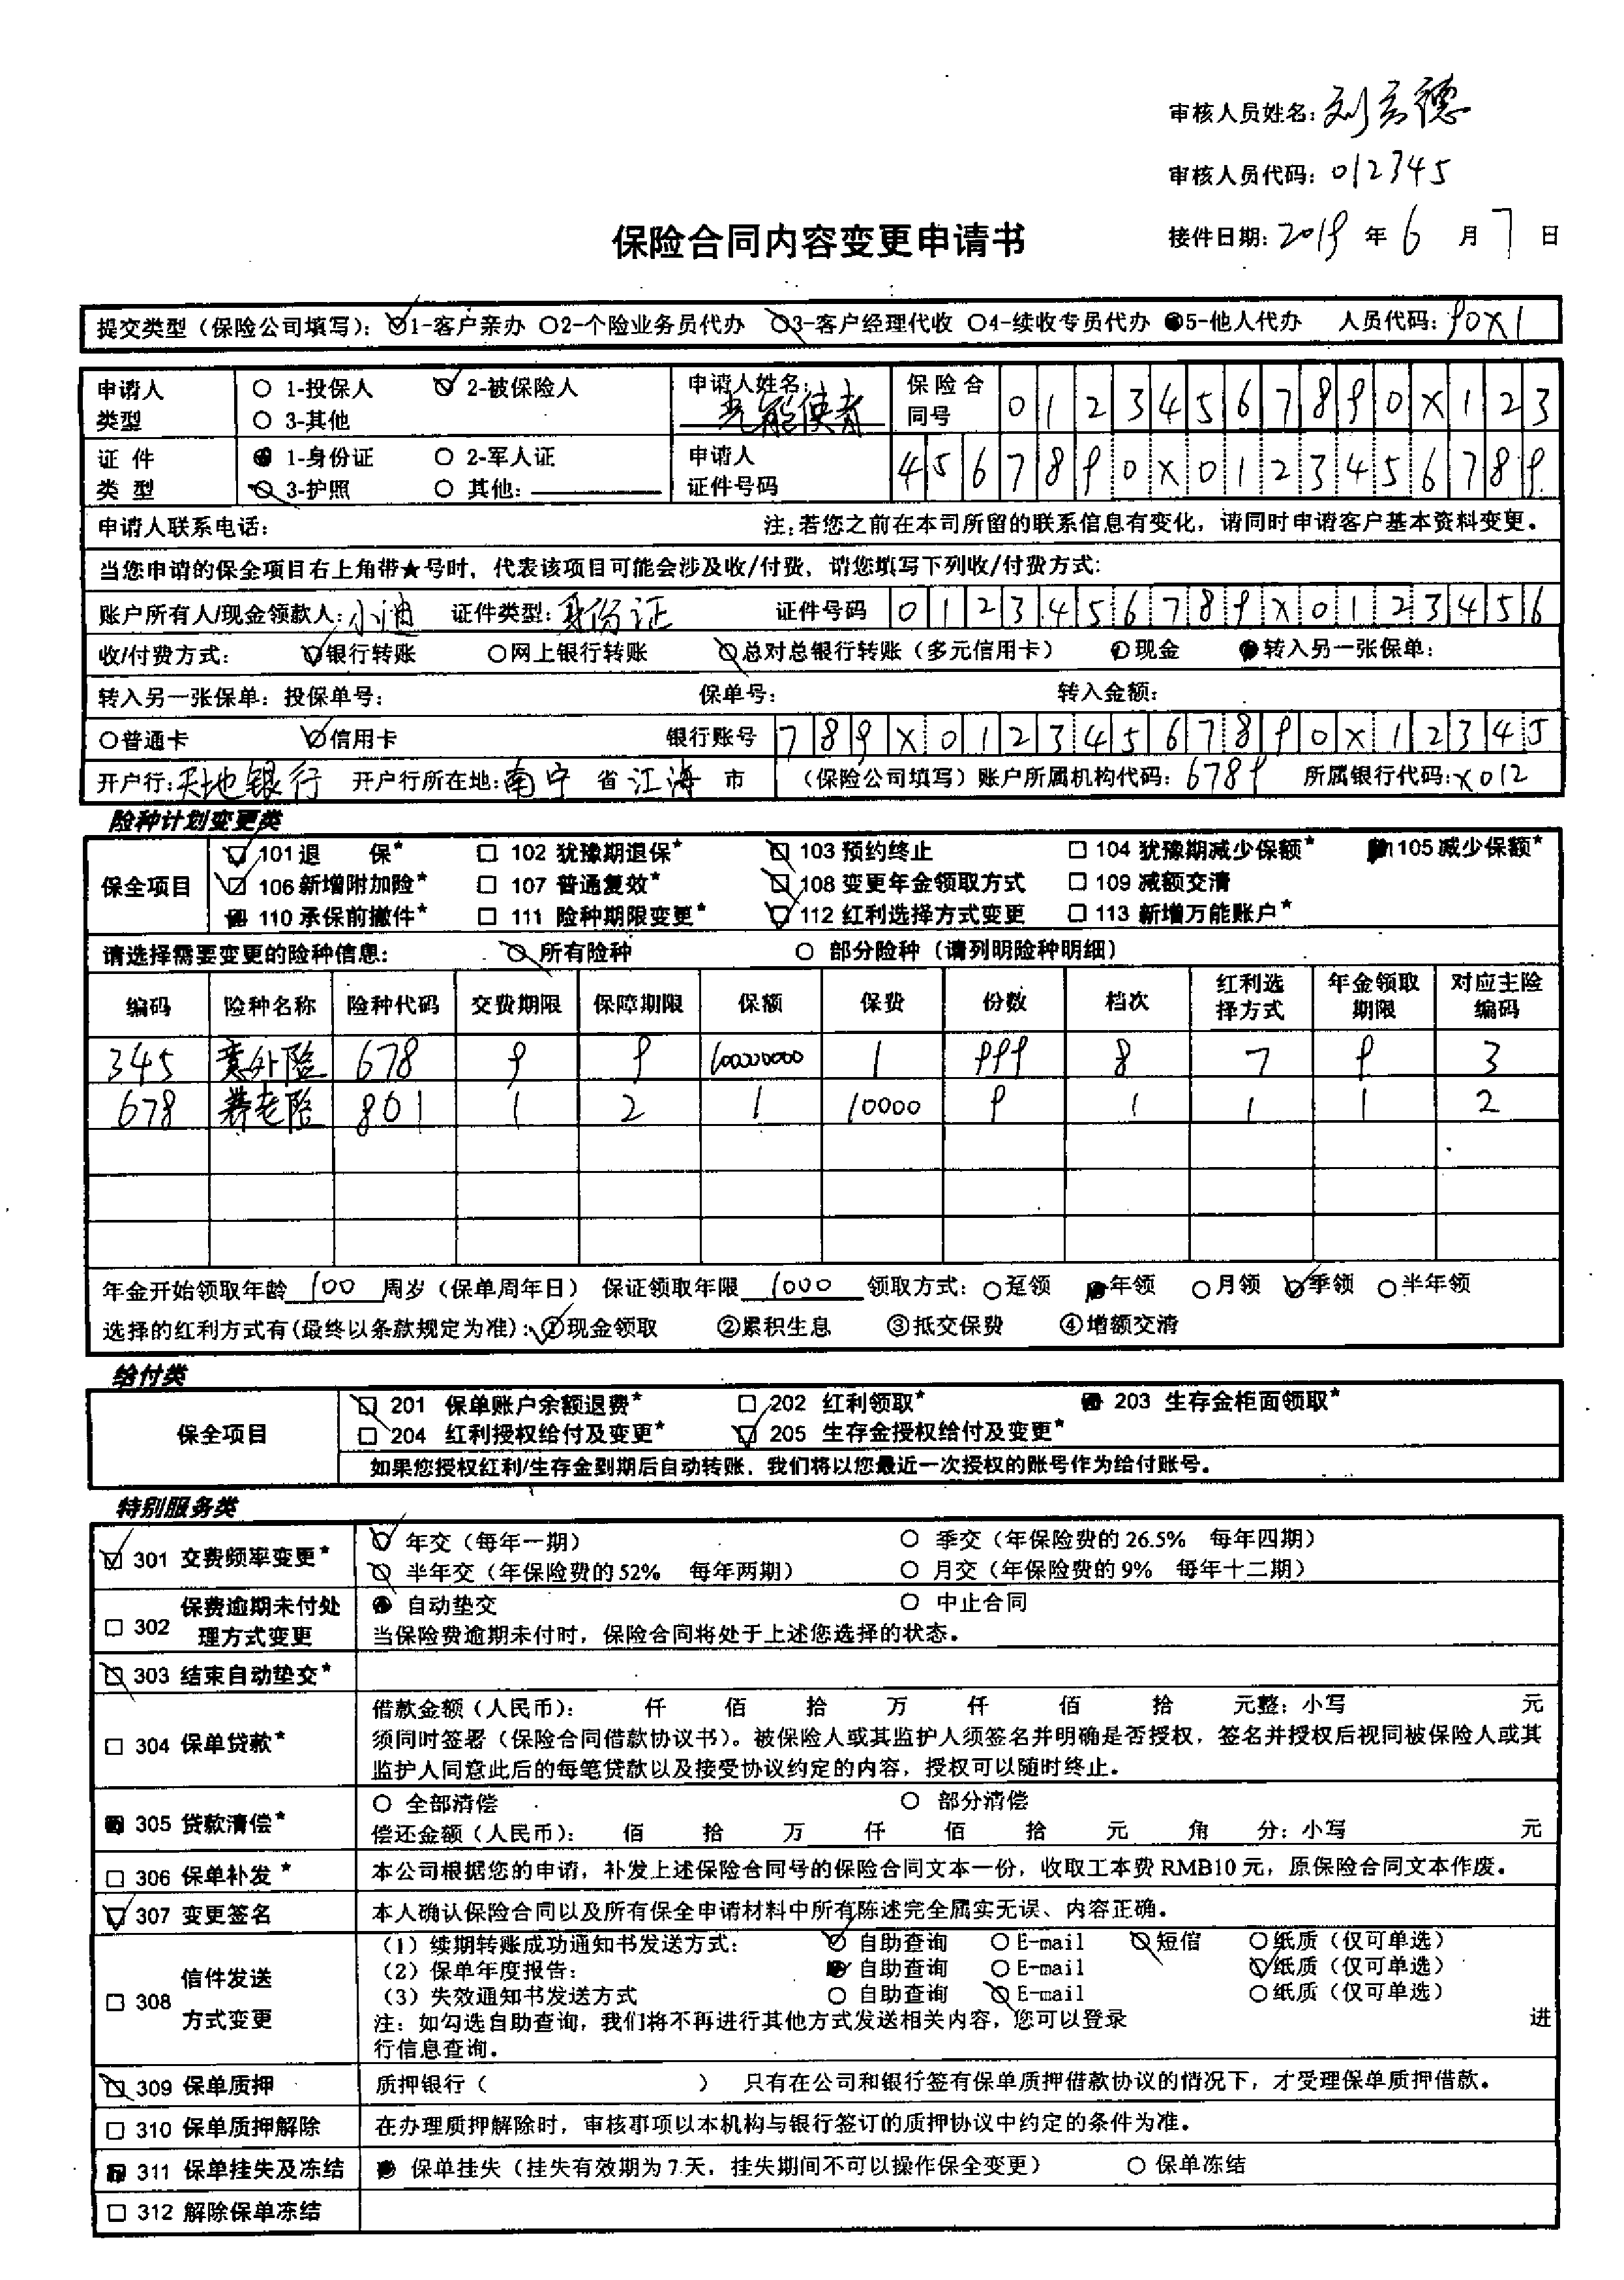 审核人员姓名:刘玄德
审核人员代码:012345
保险合同内容变更申请书
接件日期:2019年6月7日
提交类型（保险公司填写）：○1-客户亲办 ○2-个险业务员代办 ○3-客户经理代收 ○4-续收专员代办 ●5-他人代办 人员代码:90X1
申请人类型 ○ 1-投保人 ○ 2-被保险人 ○ 3-其他
申请人姓名:光能使者
保险合同号 01234567890X123
证件类型 ● 1-身份证 ○ 2-军人证 ○ 3-护照 ○ 其他:
申请人证件号码 4567890X0123456789
申请人联系电话: 注:若您之前在本司所留的联系信息有变化，请同时申请客户基本资料变更。
当您申请的保全项目右上角带★号时，代表该项目可能会涉及收/付费，请您填写下列收/付费方式:
账户所有人/现金领款人:小迪 证件类型:身份证 证件号码 0123456789X0123456
收/付费方式: ○银行转账 ○网上银行转账 ○总对总银行转账（多元信用卡） ○现金 ●转入另一张保单:
转入另一张保单: 投保单号: 保单号: 转入金额:
○普通卡 ○信用卡 银行账号 789X01234567890X12345
开户行:天地银行 开户行所在地:南宁 省 江海 市 （保险公司填写）账户所属机构代码: 6789 所属银行代码:X012
险种计划变更类
保全项目
□ 101 退 保★ □ 102 犹豫期退保★ □ 103 预约终止 □ 104 犹豫期减少保额★ ■ 105 减少保额★
□ 106 新增附加险★ □ 107 普通复效★ □ 108 变更年金领取方式 □ 109 减额交清
■ 110 承保前撤件★ □ 111 险种期限变更★ □ 112 红利选择方式变更 □ 113 新增万能账户★
请选择需要变更的险种信息: ○ 所有险种 ○ 部分险种（请列明险种明细）
编码 险种名称 险种代码 交费期限 保障期限 保额 保费 份数 档次 红利选择方式 年金领取期限 对应主险编码
345 意外险 678 9 9 100000000 1 999 8 7 9 3
678 养老险 801 1 2 1 10000 9 1 1 1 2
年金开始领取年龄 100 周岁（保单周年日） 保证领取年限 1000 领取方式: ○趸领 ●年领 ○月领 ○季领 ○半年领
选择的红利方式有(最终以条款规定为准): ①现金领取 ②累积生息 ③抵交保费 ④增额交清
给付类
保全项目
□ 201 保单账户余额退费★ □ 202 红利领取★ ■ 203 生存金柜面领取★
□ 204 红利授权给付及变更★ □ 205 生存金授权给付及变更★
如果您授权红利/生存金到期后自动转账，我们将以您最近一次授权的账号作为给付账号。
特别服务类
□ 301 交费频率变更★
○ 年交（每年一期） ○ 季交（年保险费的26.5% 每年四期）
○ 半年交（年保险费的52% 每年两期） ○ 月交（年保险费的9% 每年十二期）
□ 302 保费逾期未付处理方式变更
● 自动垫交 ○ 中止合同
当保险费逾期未付时，保险合同将处于上述您选择的状态。
□ 303 结束自动垫交★
□ 304 保单贷款★
借款金额（人民币）: 仟 佰 拾 万 仟 佰 拾 元整; 小写 元
须同时签署（保险合同借款协议书）。被保险人或其监护人须签名并明确是否授权，签名并授权后视同被保险人或其
监护人同意此后的每笔贷款以及接受协议约定的内容，授权可以随时终止。
■ 305 贷款清偿★
○ 全部清偿 ○ 部分清偿
偿还金额（人民币）: 佰 拾 万 仟 佰 拾 元 角 分; 小写 元
□ 306 保单补发★ 本公司根据您的申请，补发上述保险合同号的保险合同文本一份，收取工本费RMB10元，原保险合同文本作废。
□ 307 变更签名 本人确认保险合同以及所有保全申请材料中所有陈述完全属实无误、内容正确。
□ 308 信件发送方式变更
（1）续期转账成功通知书发送方式: ○ 自助查询 ○ E-mail ○ 短信 ○ 纸质（仅可单选）
（2）保单年度报告: ● 自助查询 ○ E-mail ○ 纸质（仅可单选）
（3）失效通知书发送方式 ○ 自助查询 ○ E-mail ○ 纸质（仅可单选）
注: 如勾选自助查询，我们将不再进行其他方式发送相关内容，您可以登录 进
行信息查询。
□ 309 保单质押 质押银行（ ） 只有在公司和银行签有保单质押借款协议的情况下，才受理保单质押借款。
□ 310 保单质押解除 在办理质押解除时，审核事项以本机构与银行签订的质押协议中约定的条件为准。
■ 311 保单挂失及冻结 ● 保单挂失（挂失有效期为7天，挂失期间不可以操作保全变更） ○ 保单冻结
□ 312 解除保单冻结